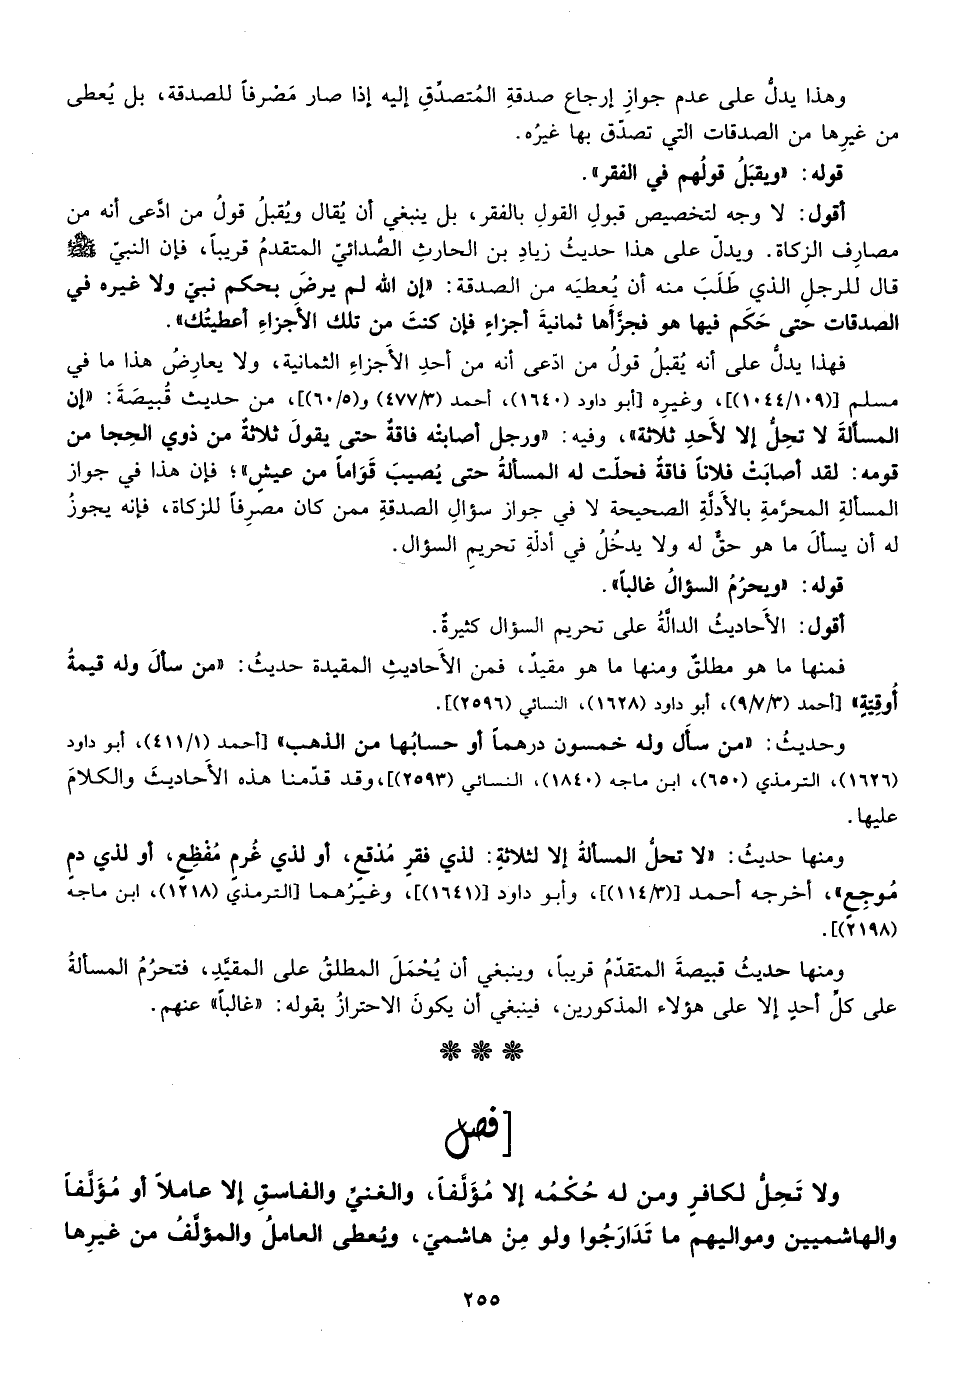 وهذا يدلُّ على عدم جوازِ إرجاع صدقةِ المُتصدِّقِ إليه إذا صار مَصْرفاً للصدقة، بل يُعطى
من غيرِها من الصدقات التي تصدّق بها غيرُه.
قوله: «ويقبَلُ قولُهم في الفقر».
أقول: لا وجه لتخصيص قبولِ القولِ بالفقر، بل ينبغي أن يُقال ويُقبلُ قولُ من ادَّعى أنه من
مصارِف الزكاة. ويدلّ على هذا حديثُ زيادِ بن الحارثِ الصُّدائيّ المتقدمُ قريباً، فإن النبيّ ﷺ
قال للرجلِ الذي طَلَبَ منه أن يُعطيَه من الصدقة: «إن الله لم يرضَ بحكم نبيّ ولا غيره في
الصدقات حتى حَكَم فيها هو فجزَّأها ثمانيةَ أجزاءٍ فإن كنتَ من تلك الأجزاءِ أعطيتُك».
فهذا يدلُّ على أنه يُقبلُ قولُ من ادّعى أنه من أحدِ الأَجزاءِ الثمانية، ولا يعارضُ هذا ما في
مسلم [(١٠٤٤/١٠٩)]، وغيره [أبو داود (١٦٤٠)، أحمد (٤٧٧/٣) و(٦٠/٥)]، من حديث قُبيصَةَ: «إن
المسألةَ لا تحِلُّ إلا لأَحدِ ثلاثة»، وفيه: «ورجل أصابتْه فاقةٌ حتى يقولَ ثلاثةٌ من ذوي الحِجا من
قومه: لقد أصابَتْ فلاناً فاقةٌ فحلّت له المسألةُ حتى يُصيبَ قَوَاماً من عيشٍ»؛ فإن هذا في جواز
المسألةِ المحرَّمةِ بالأدلَّةِ الصحيحة لا في جواز سؤالِ الصدقةِ ممن كان مصرِفاً للزكاة، فإنه يجوزُ
له أن يسألَ ما هو حقٌّ له ولا يدخُلُ في أدلّةِ تحريمِ السؤال.
قوله: «ويحرُمُ السؤالُ غالباً».
أقول: الأَحاديثُ الدالَّةُ على تحريم السؤال كثيرةٌ.
فمنها ما هو مطلقٌ ومنها ما هو مقيدٌ، فمن الأَحاديثِ المقيدة حديثُ: «من سألَ وله قيمةُ
أُوقِيّةٍ» [أحمد (٩/٧/٣)، أبو داود (١٦٢٨)، النسائي (٢٥٩٦)].
وحديثُ: «من سأَل وله خمسون درهماً أو حسابُها من الذهب» [أحمد (٤١١/١)، أبو داود
(١٦٢٦)، الترمذي (٦٥٠)، ابن ماجه (١٨٤٠)، النسائي (٢٥٩٣)]،وقد قدّمنا هذه الأَحاديثَ والكلامَ
عليها.
ومنها حديثُ: «لا تحلُّ المسألةُ إلا لثلاثةِ: لذي فقرٍ مُدْقعٍ، أو لذي غُرمٍ مُفْظِعٍ، أو لذي دمٍ
مُوجِعٍ»، أخرجه أحمد [(١١٤/٣)]، وأبو داود [(١٦٤١)]، وغيرُهما [الترمذي (١٢١٨)، ابن ماجه
(٢١٩٨)].
ومنها حديثُ قبيصةَ المتقدّمُ قريباً، وينبغي أن يُحْمَلَ المطلقُ على المقيَّدِ، فتحرُمُ المسألةُ
على كلِّ أحدٍ إلا على هؤلاء المذكورين، فينبغي أن يكونَ الاحترازُ بقوله: «غالباً» عنهم.
❋ ❋ ❋
[فصل
ولا تَحِلُّ لكافرٍ ومن له حُكْمُه إلا مُؤلَّفاً، والغنيِّ والفاسقِ إلا عاملاً أو مُؤلَّفاً
والهاشميين ومواليهم ما تَدَارَجُوا ولو مِنْ هاشميّ، ويُعطى العاملُ والمؤلَّفُ من غيرِها
٢٥٥